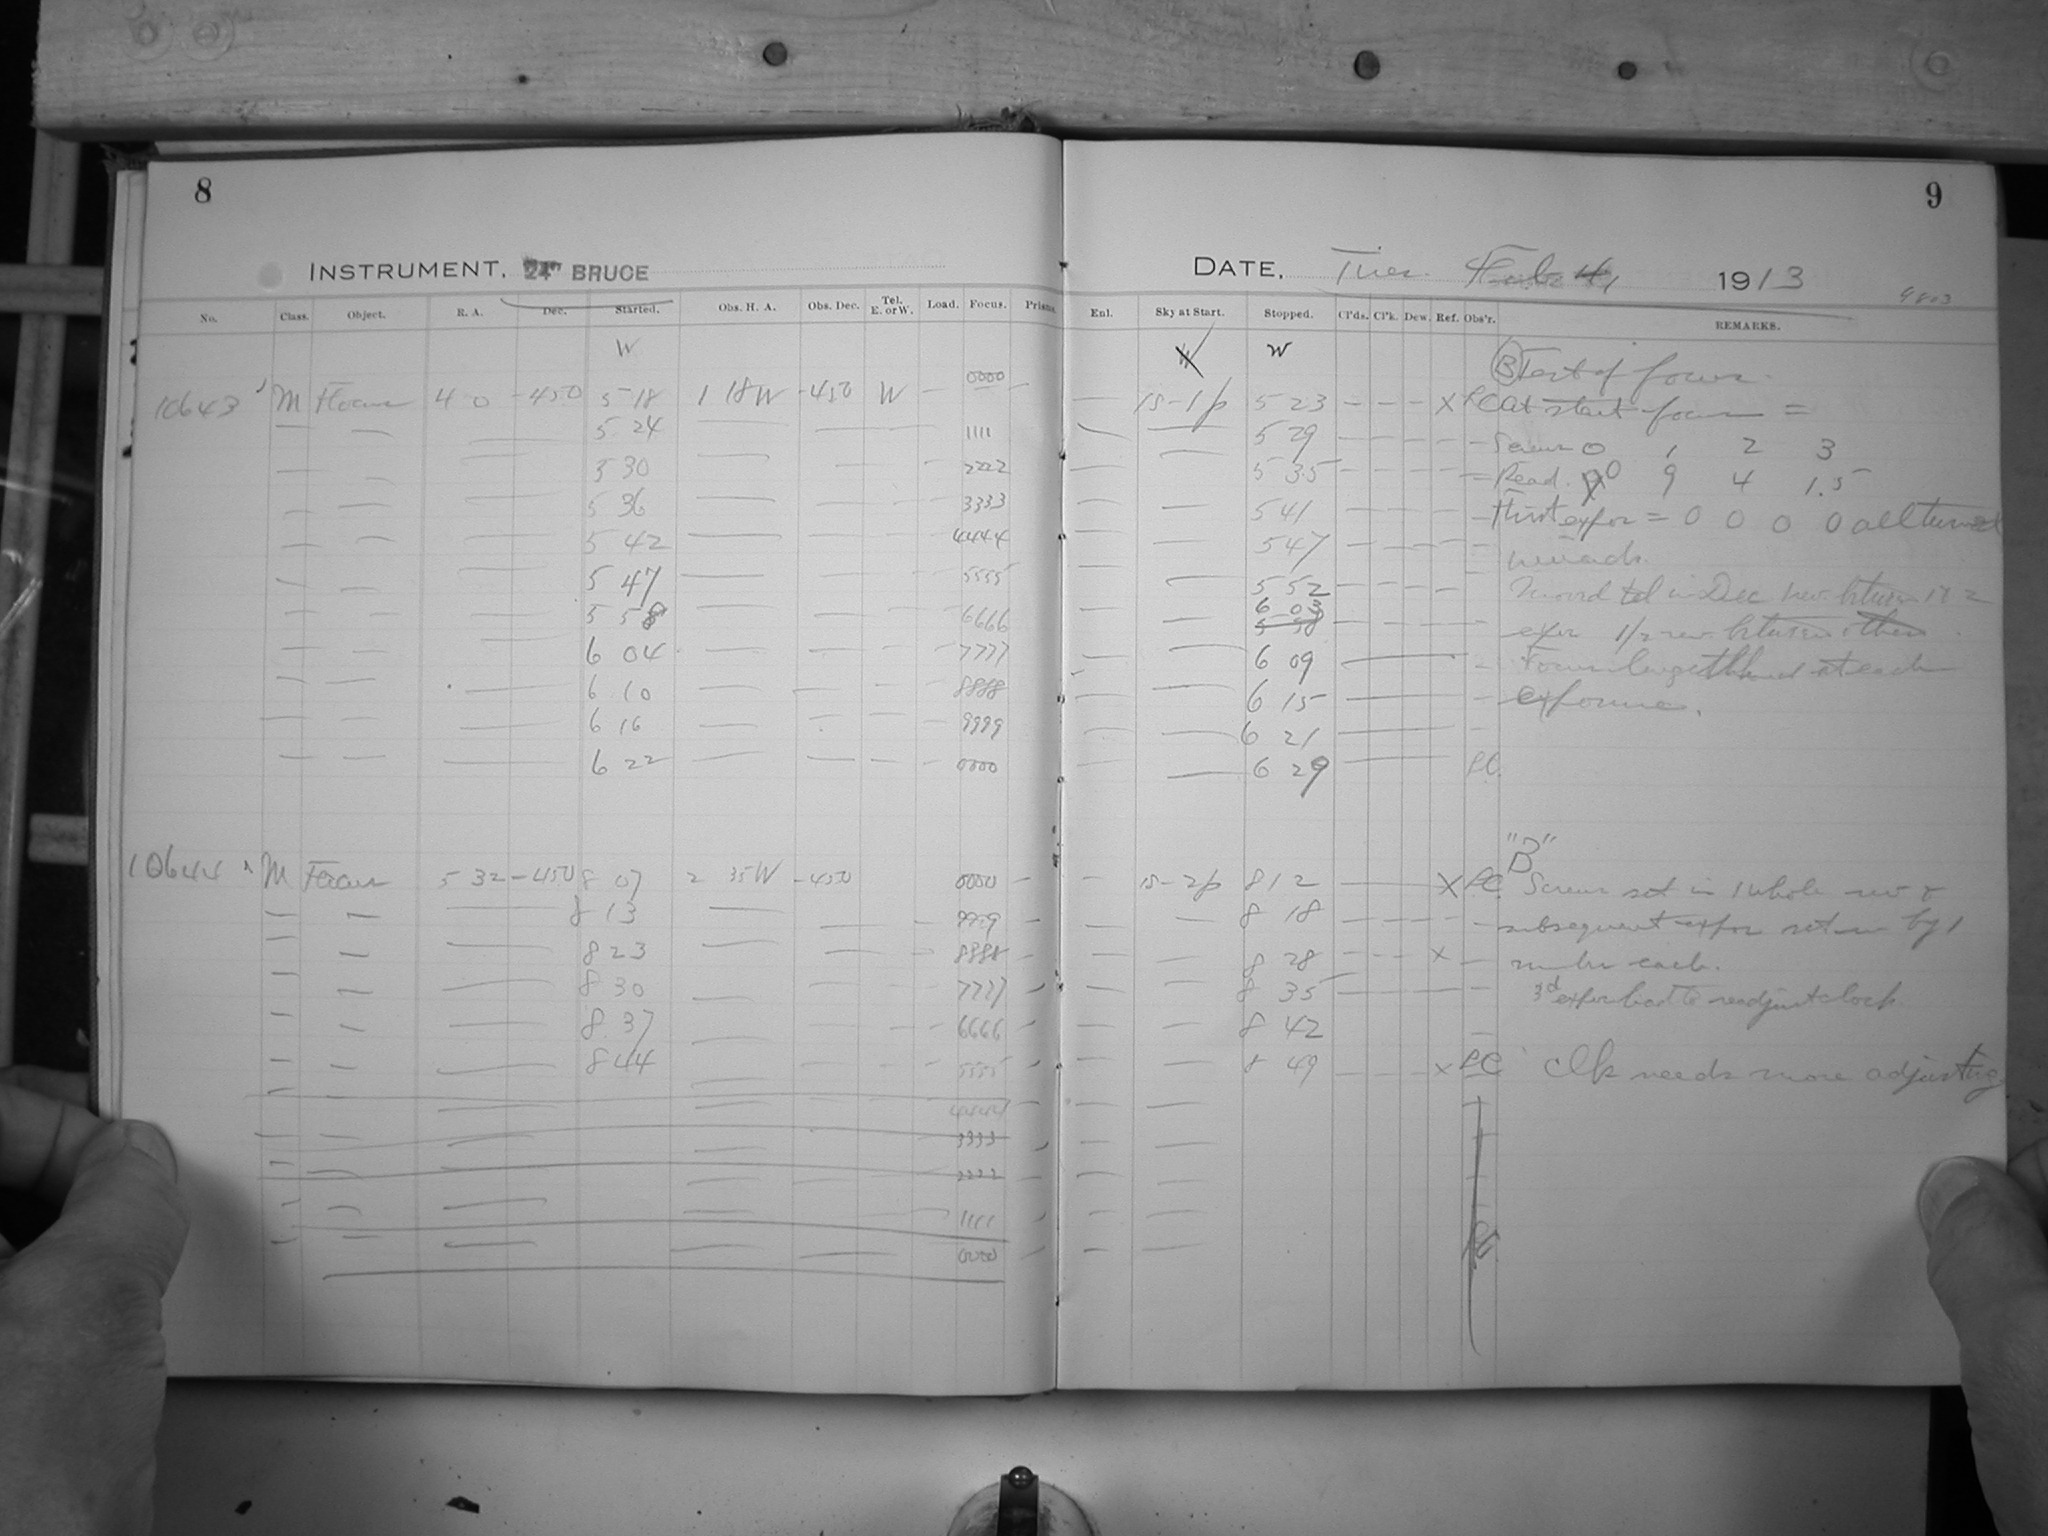 8
9
INSTRUMENT. 24" BRUCE
DATE. Tues. Feb 4, 1913
9803
No. Class. Object. R. A. Dec. Started. Obs. H. A. Obs. Dec. Tel. E. or W. Load. Focus. Prism. Enl. Sky at Start. Stopped. Cl'ds. Cl'k. Dew. Ref. Obs'r. REMARKS.
W W W
10643 M Focus 4 0 -450 5 18 1 18W -450 W — 0000 — — 15-1p 5 23 - - - X LC
— — — 5 24 — — — 1111 — — 5 29 - - - -
— — — 5 30 — — — 2222 — — 5 35 - - - -
— — — 5 36 — — — 3333 — — 5 41 -
— — — 5 42 — — — 4444 — — 5 47 - - - -
— — — 5 47 — — — 5555 — — 5 52 - - - -
— — — 5 58 — — — 6666 — — 6 03
5 58
— — — 6 04 — — — 7777 — — 6 09 — -
— — — 6 10 — — — 8888 — — 6 15 — -
— — — 6 16 — — — 9999 — — 6 21 —
— — — 6 22 — — — 0000 — — 6 29 — LC.
(B) Test of focus.
At start focus =
Screw 0 1 2 3
Read. 0 9 4 1.5
First expos = 0 0 0 0 all turned
inwards.
Moved tel in Dec 1 rev. between 1 & 2
expos 1/2 rev. between others
Focus lengthened at each
exposure.
10644 M Focus 5 32 -450 8 07 2 35W -450 0000 — 15-2p 8 12 — X LC.
— — — 8 13 — — — 9999 — — — 8 18 - - - -
— — — 8 23 — — — 8888 — — — 8 28 - - - X —
— — — 8 30 — — — 7777 — — — 8 35 — -
— — — 8 37 — — — 6666 — — — 8 42 —
— — — 8 44 — — — 5555 — — — 8 49 - - - X LC
— — — — 4444 — — —
— — — — 3333 — — —
— — — — 2222 — — —
— — — — 1111 — — —
— — — — 0000 — — —
"B"
Screws set in 1 whole rev &
subsequent expos set in by 1
number each.
3d expos had to readjust clock.
Clk needs more adjusting